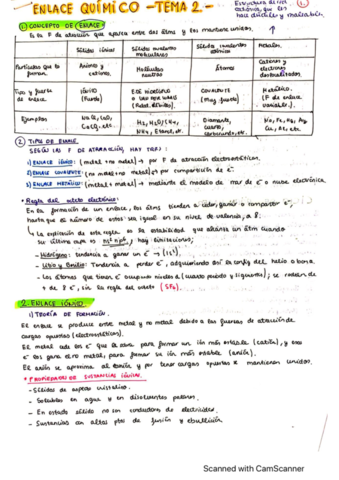 ENLACE QUÍMICO - TEMA 2 -
① CONCEPTO DE ENLACE:
Es la F de atracción que aparece entre dos átms y los mantiene unidos.
Sólido iónico
Sólidos covalentes moleculares
Sólidos covalentes atómicos
Metales
Partículas que lo forman
Aniones y cationes
Moléculas neutras
Átomos
Cationes y electrones deslocalizados
Tipo y fuerza de enlace
IÓNICO (Fuerte)
COVALENTE (Muy fuerte)
Metálico. (F de enlace variable)
Ejemplos
NaCl, CaCO₃, etc.
NH₃, Etanol, etc.
Diamante, cuarzo, etc.
Na, Fe, Hg, Ag, Cu, Al, etc.
② TIPOS DE ENLACE
SEGÚN LAS F DE ATRACCIÓN HAY TRES:
1) ENLACE IÓNICO: (metal + no metal) → por F de atracción electrostáticas.
2) ENLACE COVALENTE: (no metal + no metal) → por compartición de e⁻.
3) ENLACE METÁLICO: (metal + metal) → mediante el modelo de mar de e⁻ o nube electrónica
• Regla del octeto electrónico:
En la formación de un enlace, los átms tienden a ceder, ganar o compartir e⁻,
hasta que el número de estos sea igual en su nivel de valencia, a 8.
↳ La explicación de esta regla es la estabilidad que alcanza un átm cuando
su última capa es ns² np⁶, hay limitaciones:
- Hidrógeno: tendencia a ganar un e⁻ → (1s²)
- Litio y Berilio: Tendencia a perder e⁻, adquiriendo así la config del helio o bona.
- Los átomos que tienen e⁻ ocupando niveles d (cuarto periodo y siguientes), se rodean
de + de 8 e⁻, sin la regla del octeto (SF₆).
2. ENLACE IÓNICO
1) TEORÍA DE FORMACIÓN.
El enlace se produce entre metal y no metal debido a las fuerzas de atracción de
cargas opuestas (electrostáticas).
El metal cede los e⁻ que le sobra para formar un ión más estable (catión), y esos
e⁻ los gana el no metal, para formar su ión más estable (anión).
El anión se aproxima al catión y por tener cargas opuestas se mantienen unidos.
• PROPIEDADES DE SUSTANCIAS IÓNICAS.
- Sólidos de aspecto cristalino.
- Solubles en agua y en disolventes polares.
- En estado sólido no son conductores de electricidad.
- Sustancias con altos ptos de fusión y ebullición
Scanned with CamScanner